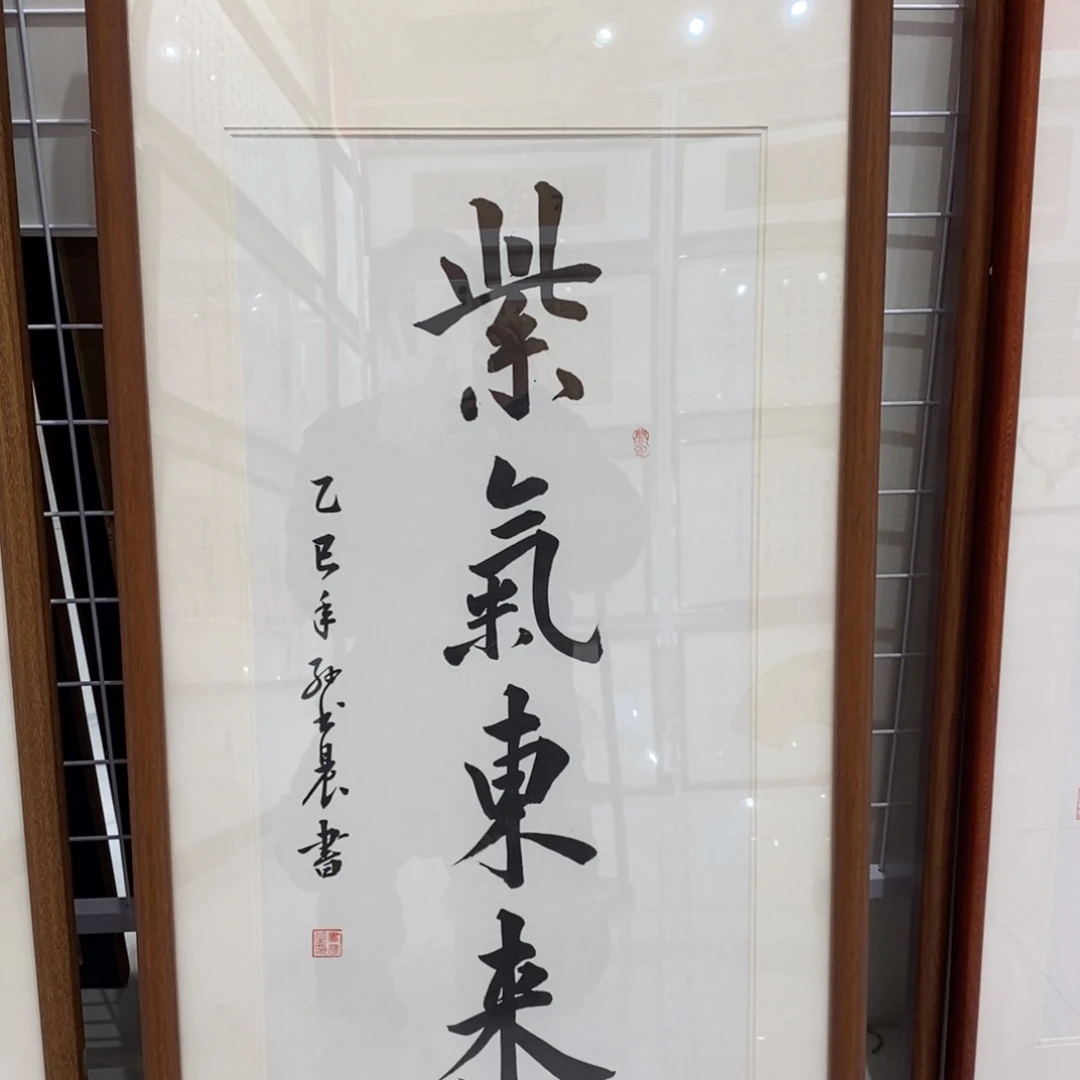 紫氣東來
乙巳年孙书晨書